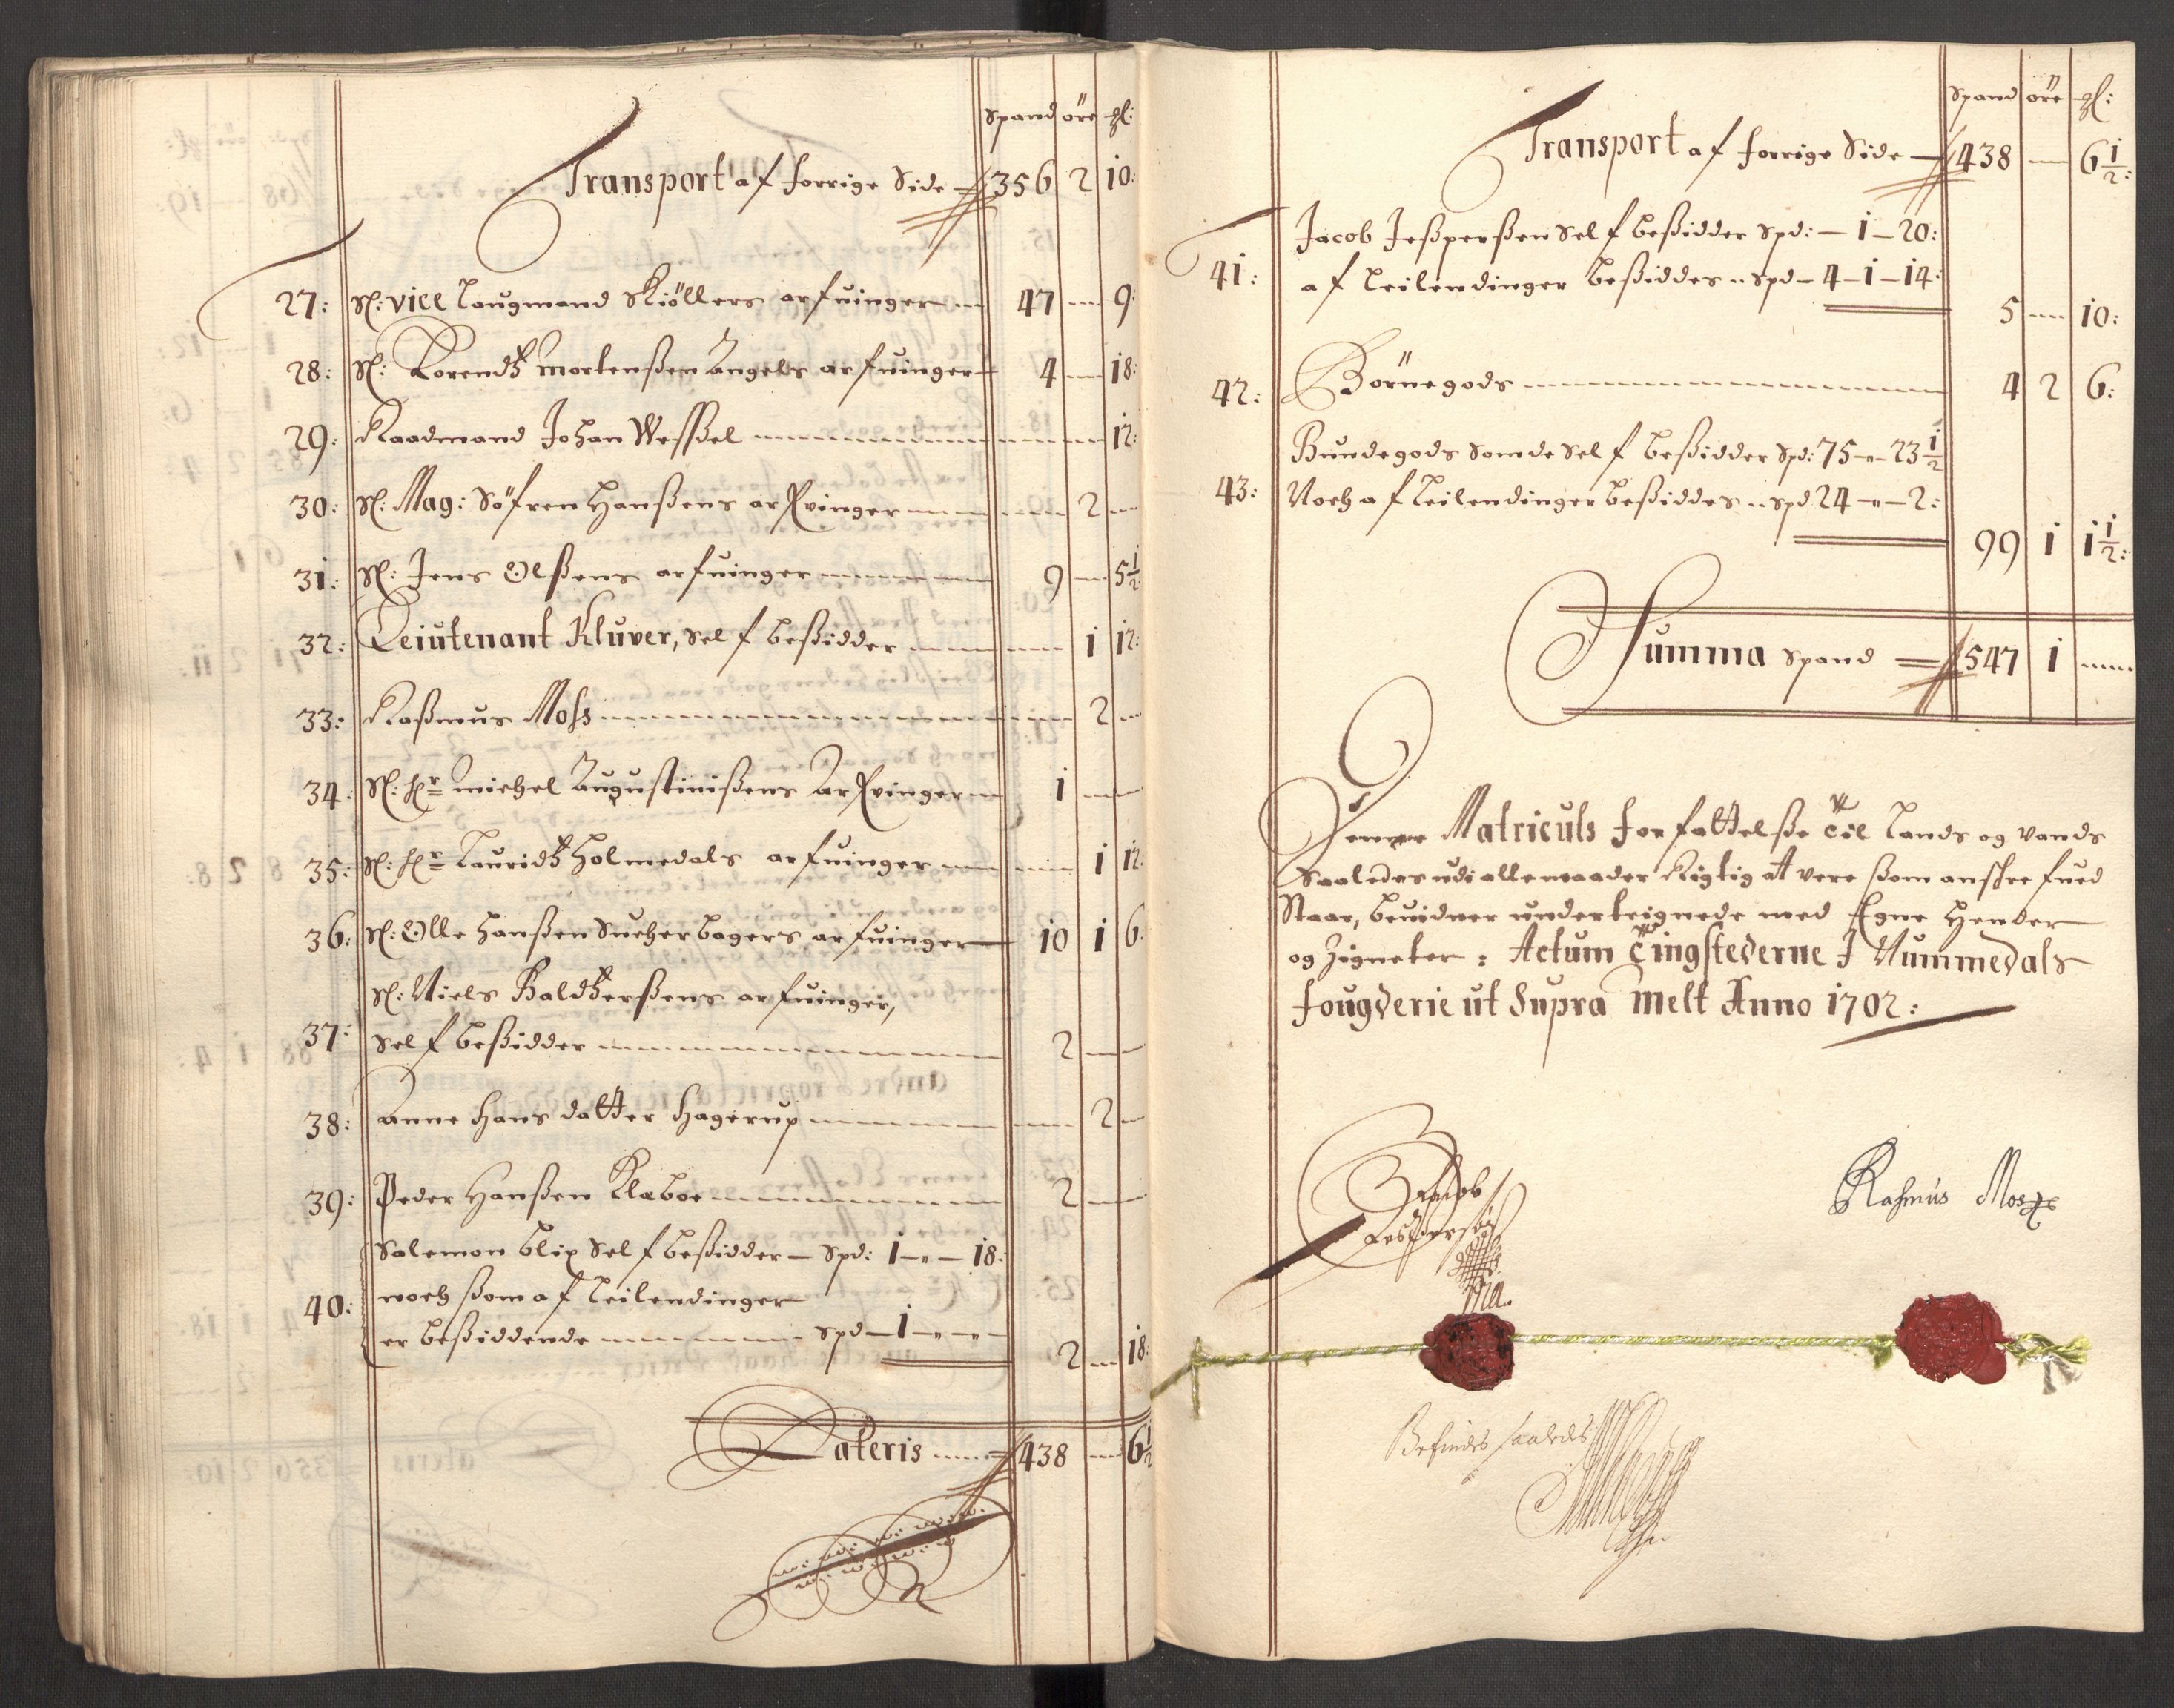 Spand öre ꝑl:
Transport af forrige Side 356 2 10:
27: Sl: vice Laugmand Kiöllers arfuinger 47 9:
28: Sl: Lorendtz Mortenßen Angels arfuinger 4 18:
29: Raadmand Johan Wesßel 12:
30: Sl: Mag: Söfren Hanßens arfvinger 2
31: Sl: Jens Olßens arfuinger 9 5½
32: Leiutenant Kluver, self beßidder 1 12:
33: Raßmus Moss 2
34: Sl: Hr Michel Augustinißens Arfvinger 1
35: Sl: Hr Lauridtz Holmedals arfuinger 1 12:
36: Sl: Olle Hanßen Sucherbagers arfuinger 10 1 6:
Sl: Niels Baldtzerßens arfuinger,
37: self beßidder 2
38: Anne Hans datter Hagerup 2
39: Peder Hanßen Klæboe 2
Salemon Blix self beßidder – Spd: 1 – „ – 18:
40: noch ßom af Leilendinger
er beßiddende spd – 1 – „ – „ –
2 18:
Lateris 438 6½
Spand öre
Transport af forrige Side 438 6½:
Jacob Jeßperßen self beßidder Spd: – 1 – 20:
41: af Leilendinger beßiddes „ spd – 4 – 1 – 14:
5 10:
42: Börnegods 4 2 6:
Bundegods som de self beßidder Spd: 75 – „ – 23½
43: Noch af Leilendinger beßiddes „ spd 24 – „ – 2:
99 1 1½:
Summa Spand 547 1
Denne Matriculs forfattelße til Lands og Vands
Saaledes udi alle maader Rigtig at vere ßom anschrefued
Staar, beuidner underteignede med Egne Hender
og Zigneter: Actum Tingstederne I Nummedals
fougderie ut Supra Melt Anno 1702:
Jacob
Jesperssøn
Rasmus Moss
Befindes saaledes